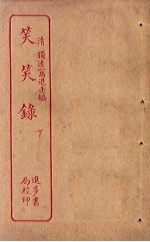 清 獨逸窩退士編
笑笑錄
下
進步書
局校印